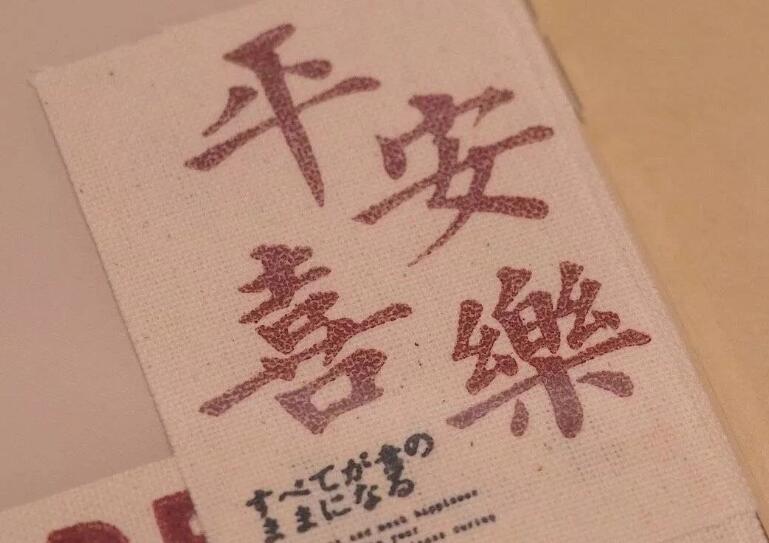 平安
喜樂
すべてが書の
ままになる
and much happiness
your
during